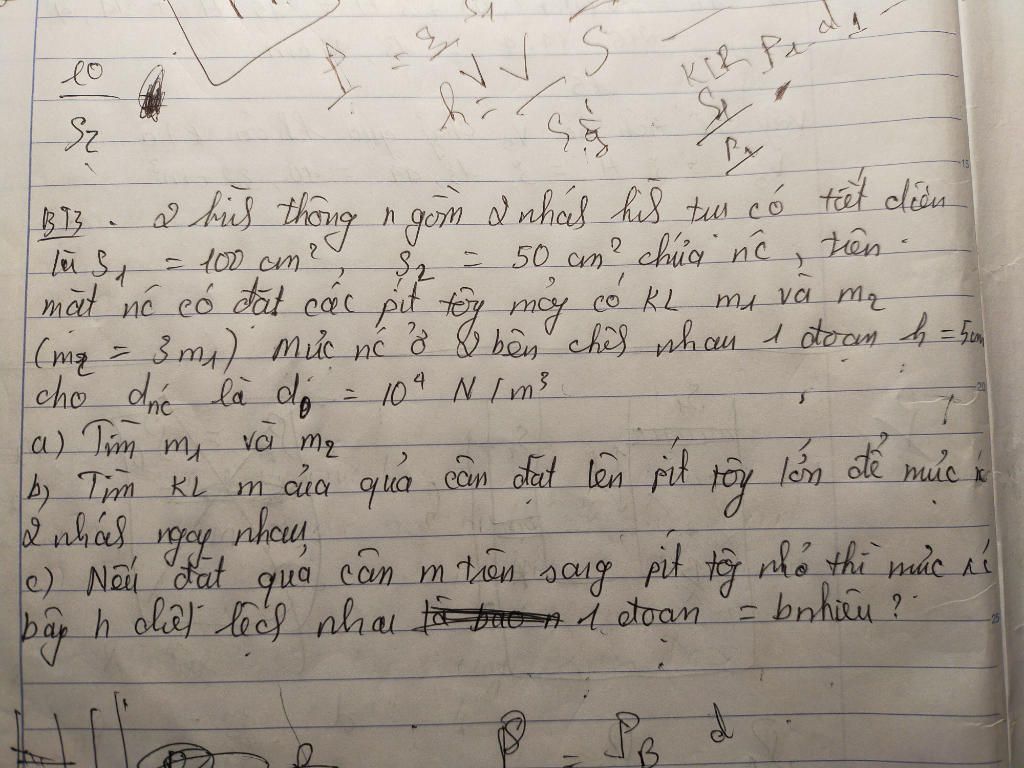 S1
P = S
h = S
KLR P2 d1
10
S2
S1
P1
BT3. 2 bình thông n gồm 2 nhánh hình trụ có tiết diện
là S1 = 100 cm², S2 = 50 cm² chứa nc, trên
mặt nc có đặt các pít tông mỏng có KL m1 và m2
(m2 = 3m1) Mực nc ở 2 bên chênh nhau 1 đoạn h = 5cm
cho dnc là d0 = 10⁴ N/m³
a) Tìm m1 và m2
b) Tìm KL m của quả cân đặt lên pít tông lớn để mực
2 nhánh ngay nhau
c) Nếu đặt quả cân m trên sang pít tông nhỏ thì mực
bây h chênh lệch nhau 1 đoạn = bnhiêu?
P = PB d